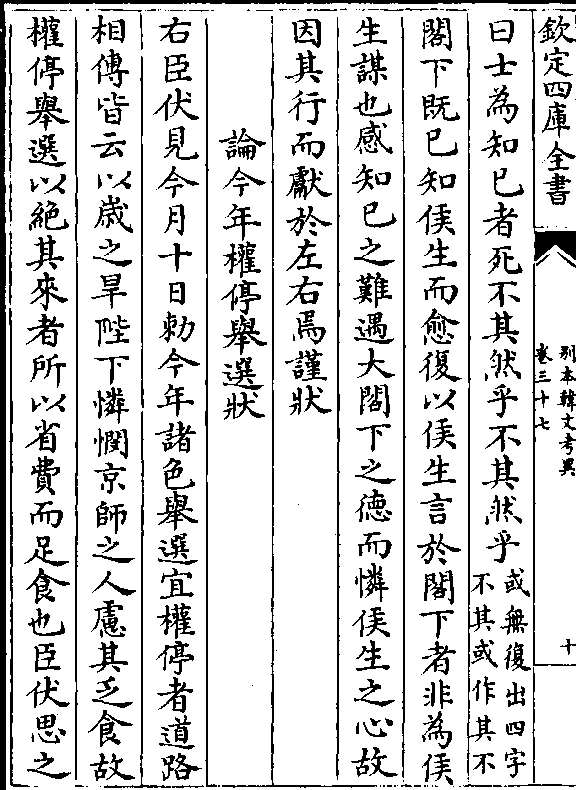 欽定四庫全書
別本韓文考異
卷三十七
十
曰士為知已者死不其然乎不其然乎或無復出四字
不其或作其不
閣下既已知侯生而愈復以侯生言於閣下者非為侯
生謀也感知已之難遇大閣下之德而憐侯生之心故
因其行而獻於左右焉謹狀
論今年權停舉選狀
右臣伏見今月十日勅今年諸色舉選宜權停者道路
相傳皆云以歲之旱陛下憐憫京師之人慮其乏食故
權停舉選以絕其來者所以省費而足食也臣伏思之